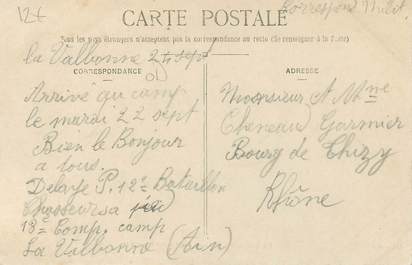 12€
Correspond Milit.
CARTE POSTALE
Tous les pays étrangers n'acceptent pas la correspondance au recto (Se renseigner à la Poste)
la Valbonne 24 sept
CORRESPONDANCE
ADRESSE
Arrivé au camp
le mardi 22 sept
Bien le Bonjour
a tous.
Delaye P. 12e Bataillon
Chasseurs a
13e Comp. camp
La Valbonne (Ain)
Monsieur et Mme
Cheneau Garnier
Bourg de Thizy
Rhône